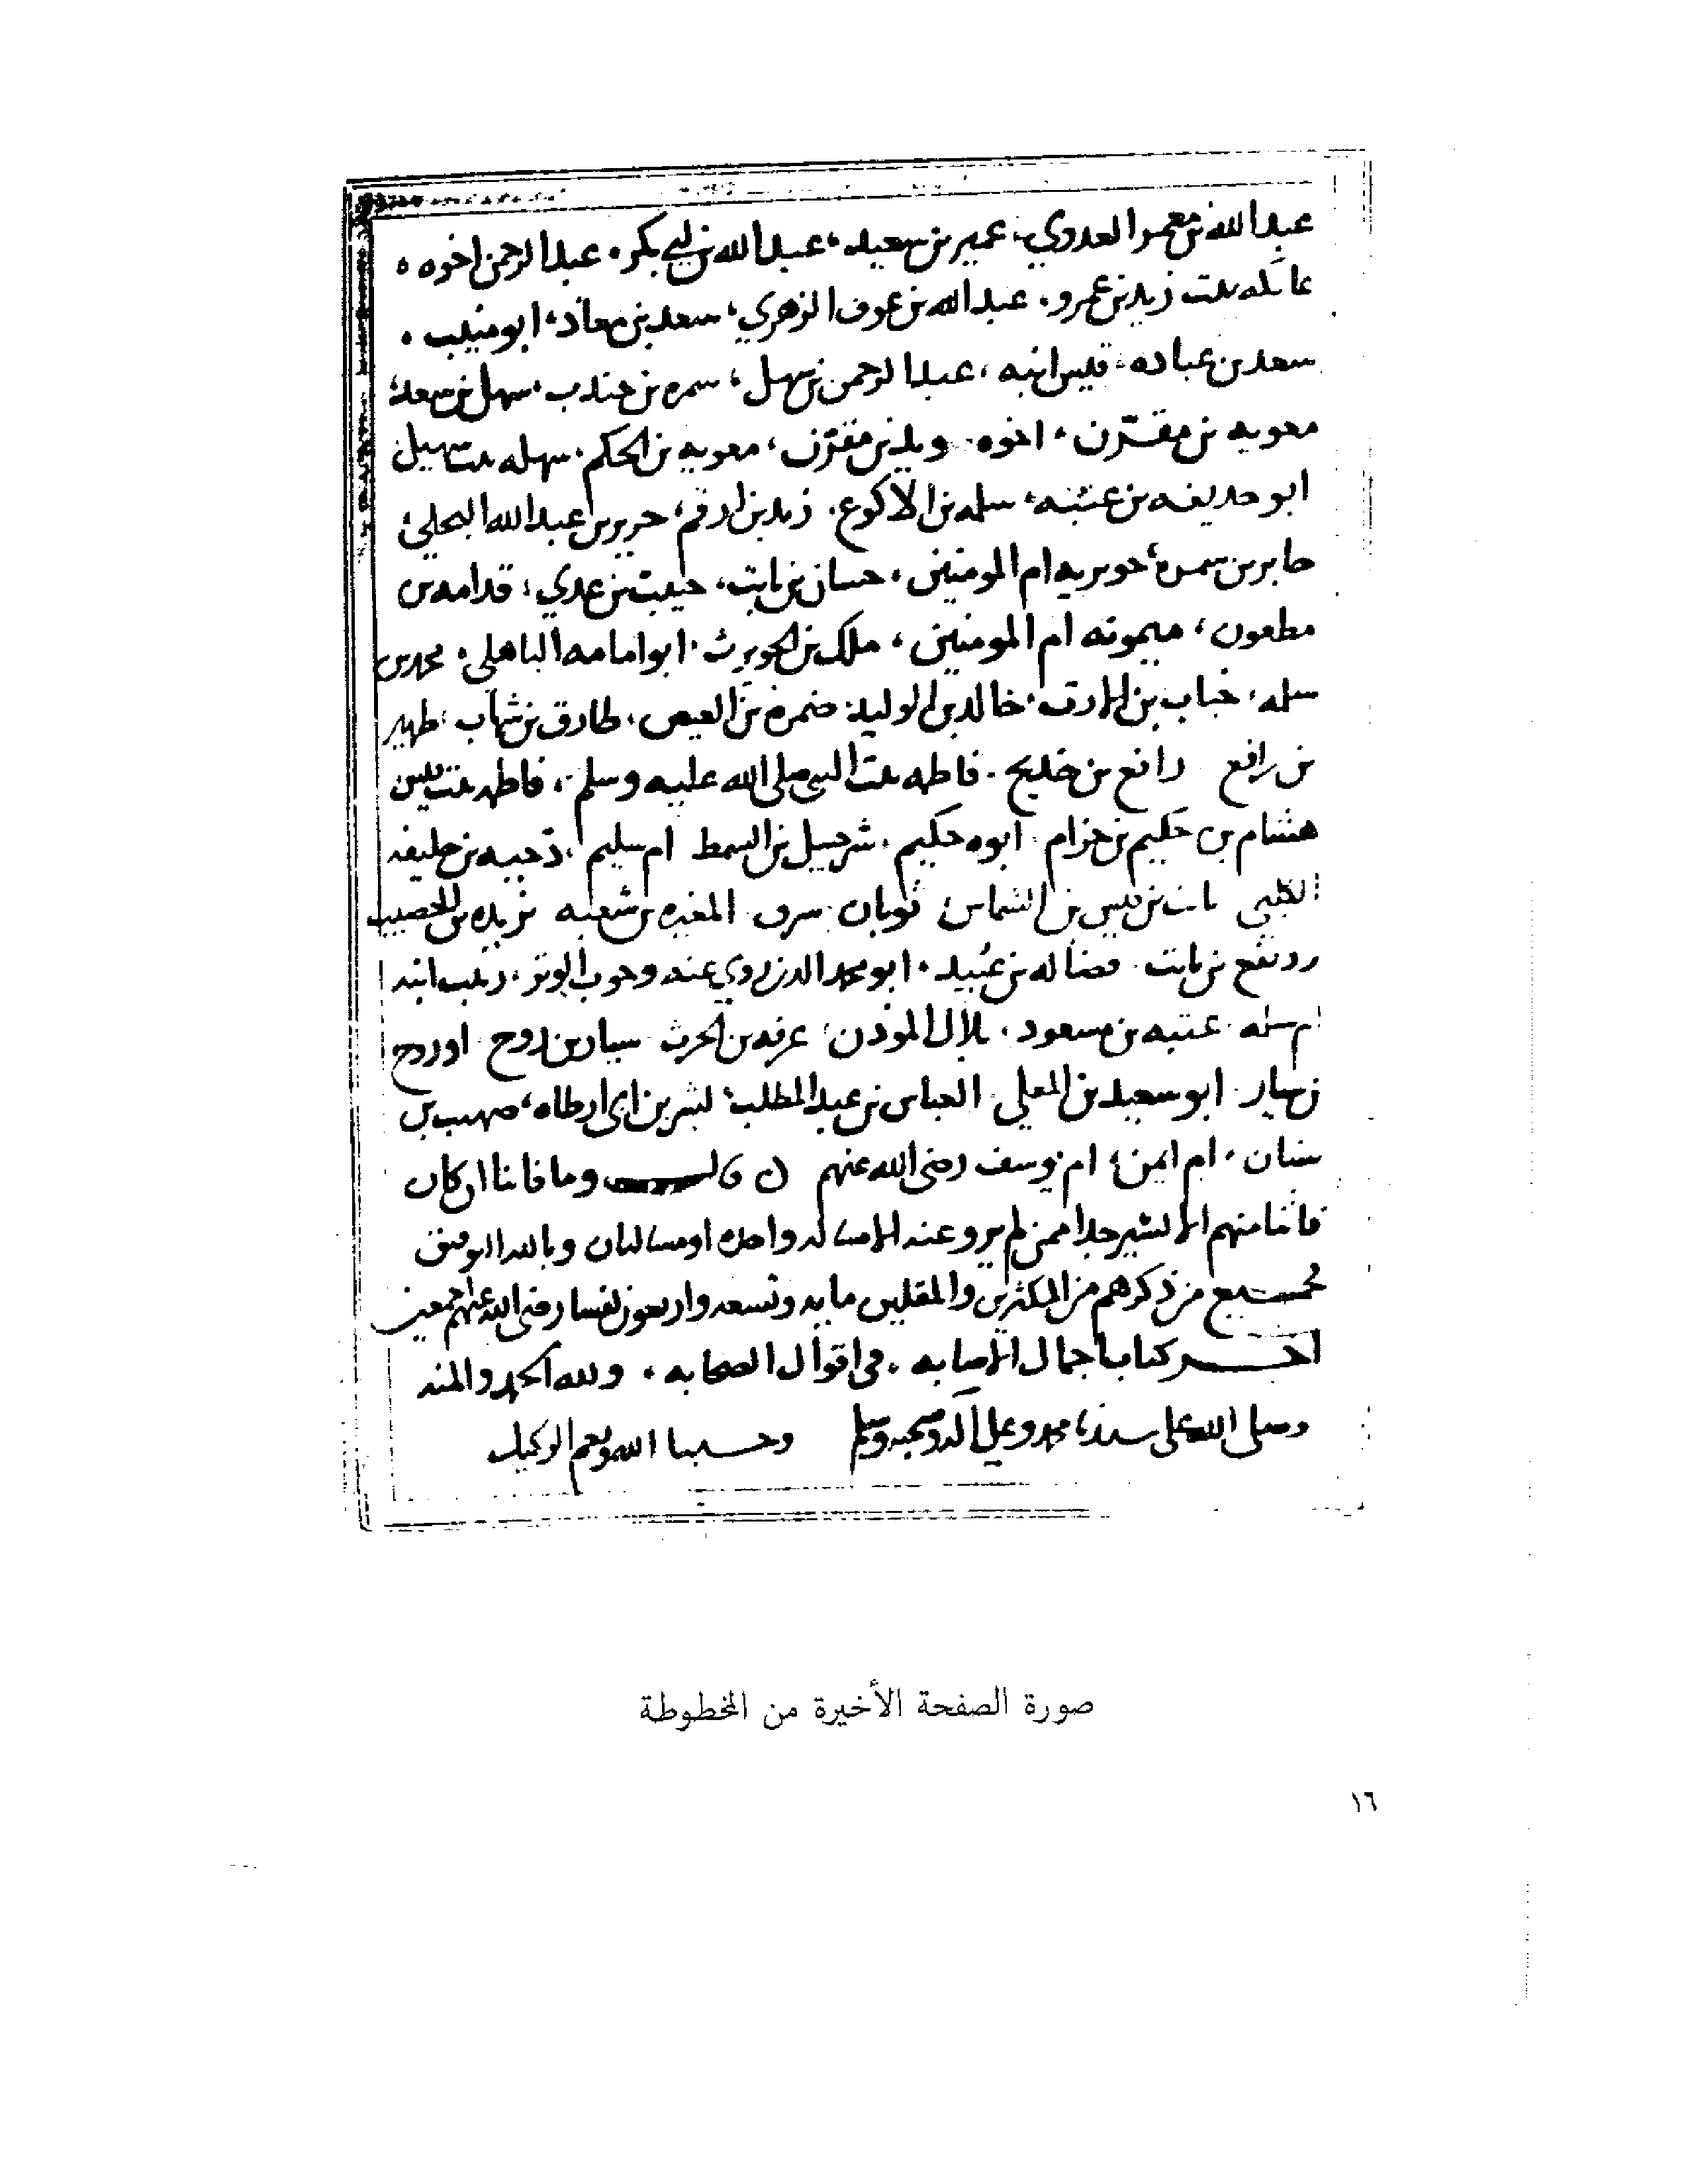 عبد الله بن معمر العدوي، عمير بن سعيد، عبد الله بن ابي بكر، عبد الرحمن اخوه،
عاتكه بنت زيد بن عمرو، عبد الله بن عوف الزهري، سعد بن معاذ، ابو منيب،
سعد بن عباده، قيس ابنه، عبد الرحمن بن سهل، سمره بن جندب، سهل بن سعد،
معويه بن مقرن، اخوه سويد بن مقرن، معويه بن الحكم، سهله بنت سهيل
ابو حذيفه بن عتبه، سلمه بن الاكوع، زيد بن ارقم، جرير بن عبد الله البجلي
جابر بن سمره، جويريه ام المومنين، حسان بن ثابت، حبيب بن عدي، قدامه بن
مظعون، ميمونه ام المومنين، ملك بن الحويرث، ابو امامه الباهلي، محمد بن
سلمه، خباب بن الارت، خالد بن الوليد، ضمره بن العيص، طارق بن شهاب، ظهير
بن رافع رافع بن خديج، فاطمه بنت النبي صلى الله عليه وسلم، فاطمه بنت قيس
هشام بن حكيم بن حزام، ابوه حكيم، شرحبيل بن السمط ام سليم، دحيه بن خليفه
الكلبي ثابت بن قيس بن الشماس، ثوبان سرق المغيره بن شعبه بريده بن الحصيب
رويفع بن ثابت، فضاله بن عبيد، ابو محمد الذي روي عنه وجوب الوتر، زينب ابنه
ام سلمه عتبه بن مسعود، بلال الموذن، عرفه بن الحرث سيار بن روح او روح
بن سيار، ابو سعيد بن المعلى، العباس بن عبد المطلب، بشر بن ابي ارطاه، صهيب بن
سنان، ام ايمن، ام يوسف رضي الله عنهم وما فاتنا ان كان
فاتنا منهم الا اليسير جدا ممن لم يرو عنه الا مساله واحده او مسالتان وبالله التوفيق
فجميع من ذكرهم من المكثرين والمقلين مايه وتسعه واربعون نفسا رضي الله عنهم اجمعين
اخر كتاب اجمال الاصابه، في اقوال الصحابه، ولله الحمد والمنه
وصلى الله على سيدنا محمد وعلى اله وصحبه وسلم وحسبنا الله ونعم الوكيل
صورة الصفحة الأخيرة من المخطوطة
١٦